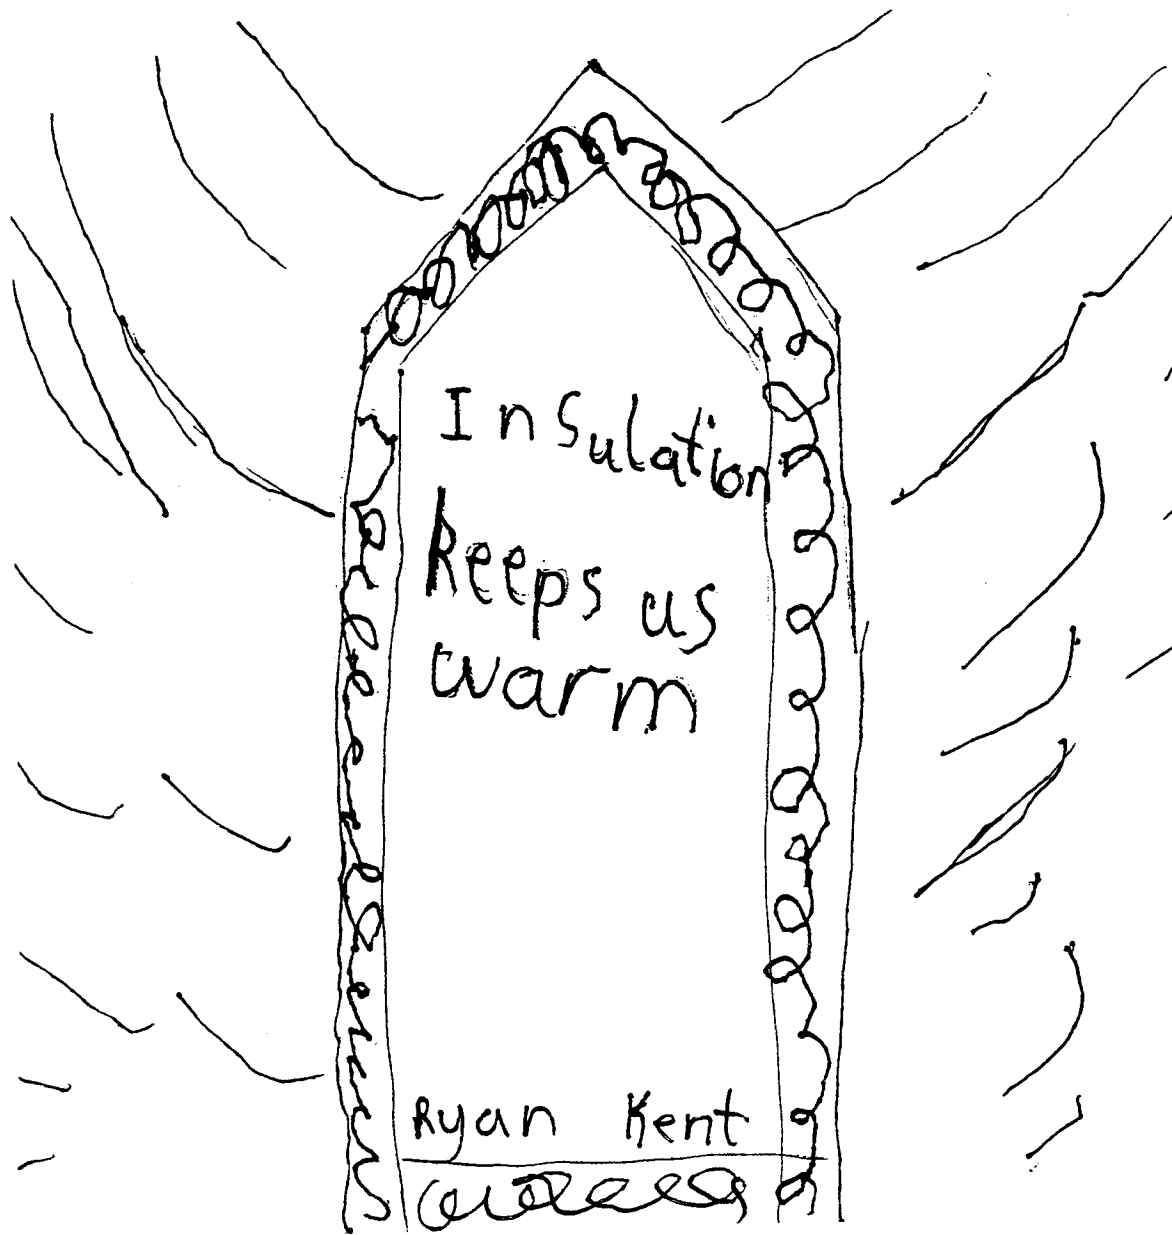 Insulation
Keeps us
warm
Ryan Kent